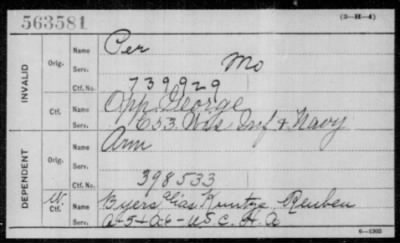 563581
(3—H—4)
INVALID
Orig.
Name
Per
Serv.
Mo
Ctf. No.
739929
Ctf.
Name
Opp. George
Serv.
Inf & Navy
DEPENDENT
Orig.
Name
Arm
Serv.
Ctf. No.
398533
W. Ctf.
Name
Byers alias Kuntze Reuben
Serv.
U S C. H A
6—1302